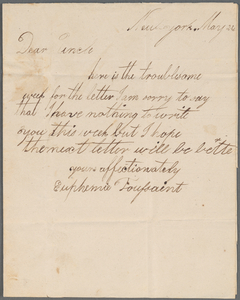 New york May 24
Dear Uncle
here is the troublsome
week for the letter I am sorry to say
that I have nothing to write
you this week but I hope
the next letter will be bette
yours affectionately
Euphemie Toussaint